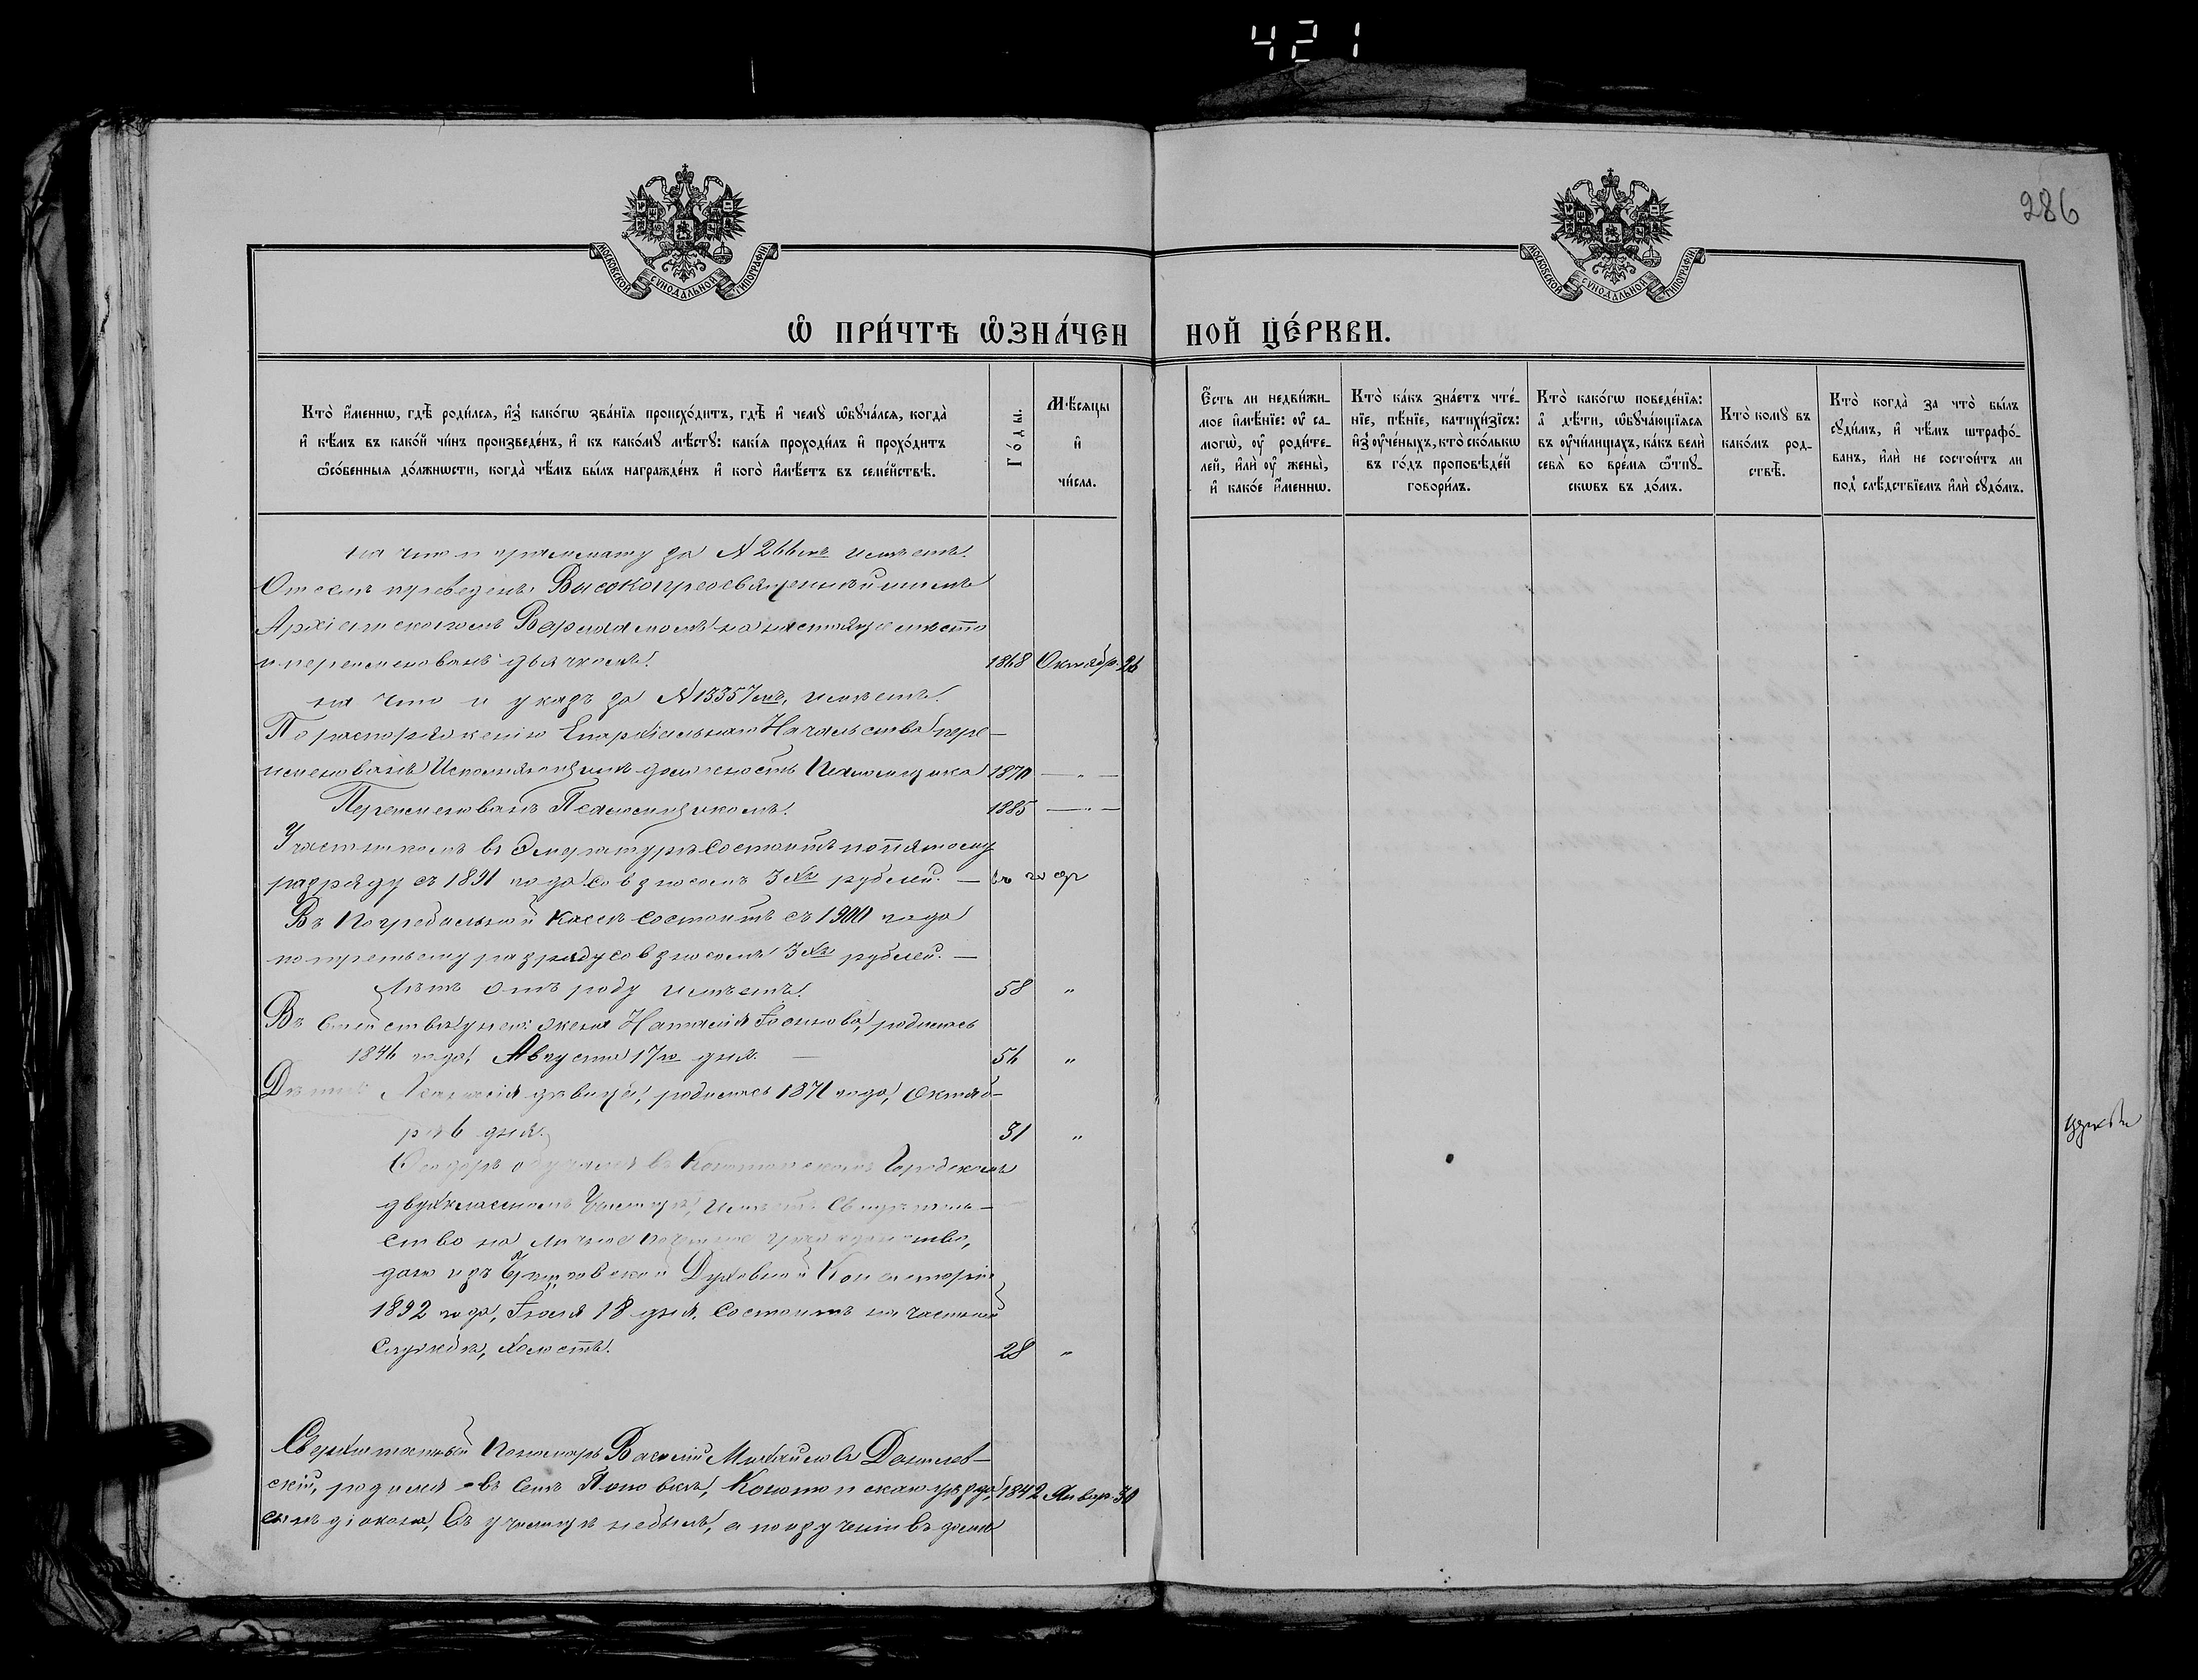 421
286
МОСКОВСКОЙ СУНОДАЛЬНОЙ ТИПОГРАФІИ
МОСКОВСКОЙ СУНОДАЛЬНОЙ ТИПОГРАФІИ
Ѡ ПРИ́ЧТѢ ѠЗНА́ЧЕН НОЙ ЦЕ́РКВИ.
Кто̀ и҆́меннѡ, гдѣ̀ роди́лся, и҆з̾ како́гѡ зва́нїѧ происхо́дитъ, гдѣ̀ и҆ чемꙋ̀ ѡ҆бꙋча́лся, когда̀
и҆ кѣ́мъ въ како́й чи́нъ произведе́нъ, и҆ къ како́мꙋ мѣ́стꙋ: какі́ѧ проходи́лъ и҆ прохо́дитъ
ѻ҆со́бенныѧ до́лжнѡсти, когда̀ чѣ́мъ бы́лъ награжде́нъ и҆ кого̀ и҆мѣ́етъ въ семе́йствѣ.
Го́ды.
Мѣ́сяцы
и҆
чи́сла.
Е҆́сть ли недви́жи-
мое и҆мѣ́нїе: ᲂу҆ са-
могѡ̀, ᲂу҆ роди́те-
лей, и҆лѝ ᲂу҆ жены̀,
и҆ како́е и҆́меннѡ.
Кто̀ ка́къ зна́етъ чте́-
нїе, пѣ́нїе, катихи́зїсъ:
и҆з̾ ᲂу҆че́ныхъ, кто̀ ско́лькѡ
въ го́дъ проповѣ́дей
говори́лъ.
Кто̀ како́гѡ поведе́нїѧ:
а҆ дѣ́ти, ѡ҆бꙋча́ющїяся
въ ᲂу҆чи́лищахъ, ка́къ велѝ
себѧ̀ во вре́мя ѿпꙋ-
скѡвъ въ до́мъ.
Кто̀ комꙋ̀ въ
како́мъ род-
ствѣ̀.
Кто̀ когда̀ за что̀ бы́лъ
сꙋди́мъ, и҆ чѣ́мъ штрафо́-
ванъ, и҆лѝ не состои́тъ ли
под̾ слѣ́дствїемъ и҆лѝ сꙋдо́мъ.
на что и грammату за N 266мъ имѣетъ.
Отселѣ переведенъ Высокопреосвященнѣйшимъ
Архіепископомъ Варлаамомъ на настоящее мѣсто
и переименованъ дьячкомъ. 1868 Октябр. 26
на что и указъ за N 13357мъ, имѣетъ.
По распоряженію Епархіальнаго Начальства пере-
именованъ Исполняющимъ должность Псаломщика 1870 — " —
Переименованъ Псаломщикомъ. 1885 — " —
Участникомъ въ Эмеритурѣ состоитъ по пятому
разряду съ 1891 года со взносомъ 3хъ рублей. — въ годъ
Въ Погребальной Кассѣ состоитъ съ 1900 года
по третьему разряду со взносомъ 3хъ рублей. —
Лѣтъ отъ роду имѣетъ. 58 "
Въ семействѣ у него: жена Наталія Іосифова, родилась
1846 года, Августа 17го дня. — 56 "
Дѣти: девица, родилась 1871 года, Октяб-
ря 6 дня. 31 "
Ѳеодоръ обучался въ Конотопскомъ Городскомъ
двухклассномъ Училищѣ, имѣетъ Свидѣтель-
ство на личное почетное гражданство,
дано изъ Черниговской Духовной Консисторіи
1892 года, Іюля 18 дня, состоитъ на частной
службѣ, холостъ. 28 "
церкви
Сверхштатный Пономарь Василій Михайловъ Данилев-
скій, родился въ селѣ Поповкѣ, Конотопскаго уѣзда, 1842 Январ. 30
сынъ діакона, въ училищѣ не былъ, а по изученіи въ домѣ